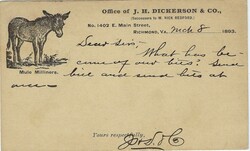 Office of J. H. DICKERSON & CO.,
(Successors to M. RICE REDFORD,)
No. 1402 E. Main Street,
RICHMOND, VA., Mch 8 1893.
Mule Milliners.
Dear Sirs:-
What has be-
come of our bits? Send
bill and send bits at
once
Yours respectfully,